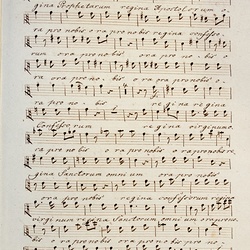 gina Prophetarum regina Apostolorum o
ra pro nobis ora pro nobis regina confesso
rum ora pro nobis ora pro nobis
ora pro no bis ora pro nobis o
ra pro no bis regina regina
Confessorum regina virginum
ra pro no bis ora pro nobis ora pro nobis re
gina Sanctorum omni um ora pro no bis o
ra pro nobis regina confessorum
virginum regina Sanctorum omnium ora pro no
bis ora pro nobis ora pro nobis o